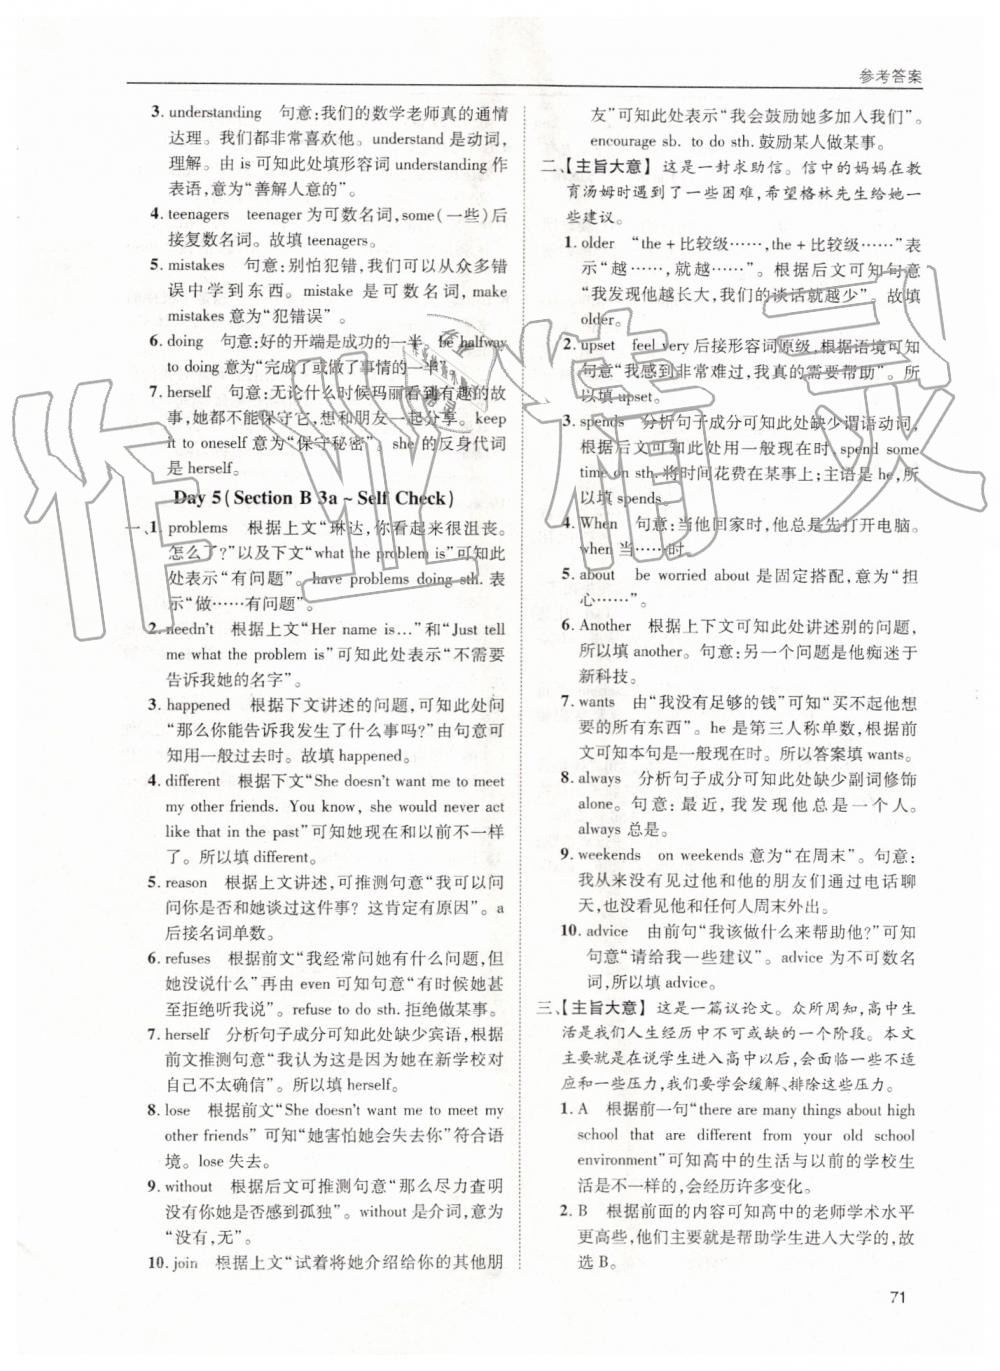 参考答案
3. understanding 句意:我们的数学老师真的通情
达理。我们都非常喜欢他。understand 是动词,
理解。由 is 可知此处填形容词 understanding 作
表语,意为“善解人意的”。
4. teenagers teenager 为可数名词,some(一些)后
接复数名词。故填 teenagers。
5. mistakes 句意:别怕犯错,我们可以从众多错
误中学到东西。mistake 是可数名词,make
mistakes 意为“犯错误”。
6. doing 句意:好的开端是成功的一半。be halfway
to doing 意为“完成了或做了事情的一半”。
7. herself 句意:无论什么时候玛丽看到有趣的故
事,她都不能保守它,想和朋友一起分享。keep
it to oneself 意为“保守秘密”。she 的反身代词
是 herself。
Day 5(Section B 3a ~ Self Check)
一、1. problems 根据上文“琳达,你看起来很沮丧。
怎么了?”以及下文“what the problem is”可知此
处表示“有问题”。have problems doing sth. 表
示“做……有问题”。
2. needn't 根据上文“Her name is…”和“Just tell
me what the problem is”可知此处表示“不需要
告诉我她的名字”。
3. happened 根据下文讲述的问题,可知此处问
“那么你能告诉我发生了什么事吗?”由句意可
知用一般过去时。故填 happened。
4. different 根据下文“She doesn't want me to meet
my other friends. You know, she would never act
like that in the past”可知她现在和以前不一样
了。所以填 different。
5. reason 根据上文讲述,可推测句意“我可以问
问你是否和她谈过这件事? 这肯定有原因”。a
后接名词单数。
6. refuses 根据前文“我经常问她有什么问题,但
她没说什么”再由 even 可知句意“有时候她甚
至拒绝听我说”。refuse to do sth. 拒绝做某事。
7. herself 分析句子成分可知此处缺少宾语,根据
前文推测句意“我认为这是因为她在新学校对
自己不太确信”。所以填 herself。
8. lose 根据前文“She doesn't want me to meet my
other friends”可知“她害怕她会失去你”符合语
境。lose 失去。
9. without 根据后文可推测句意“或者尽力查明
没有你她是否感到孤独”。without 是介词,意为
“没有,无”。
10. join 根据上文“试着将她介绍给你的其他朋
友”可知此处表示“我会鼓励她多加入我们”。
encourage sb. to do sth. 鼓励某人做某事。
二、【主旨大意】 这是一封求助信。信中的妈妈在教
育汤姆时遇到了一些困难,希望格林先生给她一
些建议。
1. older “the + 比较级……,the + 比较级……”表
示“越……,就越……”。根据后文可知句意
“我发现他越长大,我们的谈话就越少”。故填
older。
2. upset feel very 后接形容词原级,根据语境可知
句意“我感到非常难过,我真的需要帮助”。所
以填 upset。
3. spends 分析句子成分可知此处缺少谓语动词,
根据后文可知此处用一般现在时,spend some
time on sth. 将时间花费在某事上;主语是 he,所
以填 spends。
4. When 句意:当他回家时,他总是先打开电脑。
when 当……时。
5. about be worried about 是固定搭配,意为“担
心……”。
6. Another 根据上下文可知此处讲述别的问题,
所以填 another。句意:另一个问题是他痴迷于
新科技。
7. wants 由“我没有足够的钱”可知“买不起他想
要的所有东西”。he 是第三人称单数,根据前
文可知本句是一般现在时。所以答案填 wants。
8. always 分析句子成分可知此处缺少副词修饰
alone。句意:最近,我发现他总是一个人。
always 总是。
9. weekends on weekends 意为“在周末”。句意:
我从来没有见过他和他的朋友们通过电话聊
天,也没有看见他和任何人周末外出。
10. advice 由前句“我该做什么来帮助他?”可知
句意“请给我一些建议”。advice 为不可数名
词,所以填 advice。
三、【主旨大意】 这是一篇议论文。众所周知,高中生
活是我们人生经历中不可或缺的一个阶段。本文
主要就是在说学生进入高中以后,会面临一些不适
应和一些压力,我们要学会缓解、排除这些压力。
1. A 根据前一句“there are many things about high
school that are different from your old school
environment”可知高中的生活与以前的学校生
活是不一样的,会经历许多变化。
2. B 根据前面的内容可知高中的老师学术水平
更高些,他们主要就是帮助学生进入大学的,故
选 B。
71
作业精灵